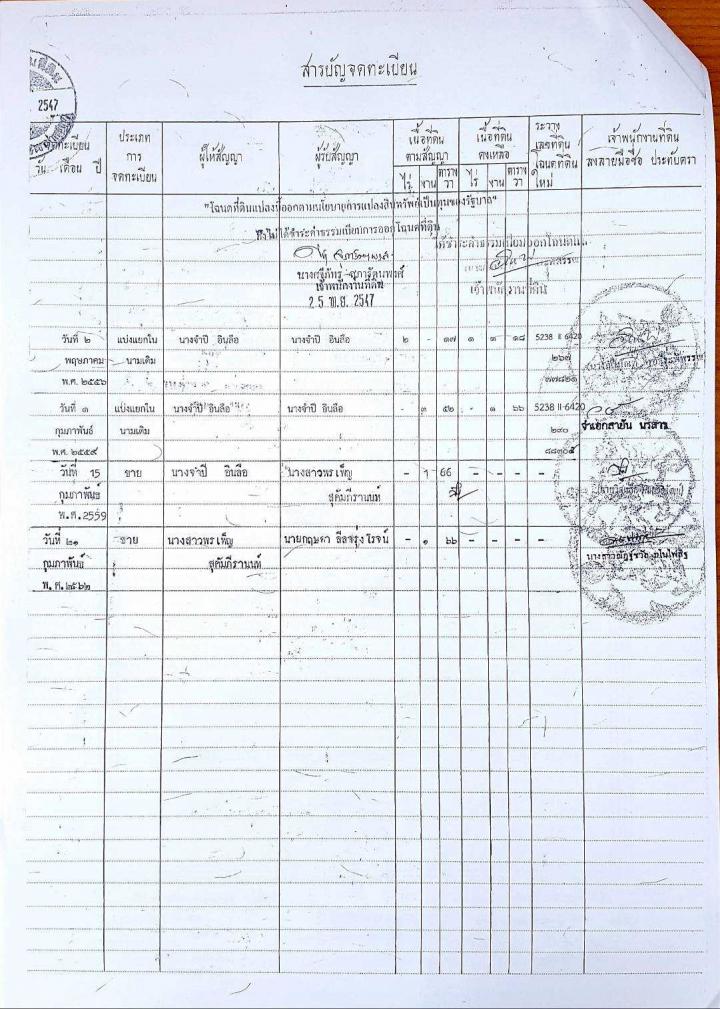 สารบัญจดทะเบียน
2547
จดทะเบียน
วัน เดือน ปี
ประเภท
การ
จดทะเบียน
ผู้ให้สัญญา
ผู้รับสัญญา
เนื้อที่ดิน
ตามสัญญา
ไร่ งาน ตาราง
วา
เนื้อที่ดิน
คงเหลือ
ไร่ งาน ตาราง
วา
ระวาง
เลขที่ดิน
โฉนดที่ดิน
ใหม่
เจ้าพนักงานที่ดิน
ลงลายมือชื่อ ประทับตรา
"โฉนดที่ดินแปลงนี้ออกตามนโยบายการแปลงสินทรัพย์เป็นทุนของรัฐบาล"
ซึ่งไม่ได้ชำระค่าธรรมเนียมการออกโฉนดที่ดิน
ได้ชำระค่าธรรมเนียมออกโฉนด
เจ้าพนักงานที่ดิน
เจ้าพนักงานที่ดิน
25 พ.ย. 2547
วันที่ ๒ แบ่งแยกใน นางจำปี อินลือ นางจำปี อินลือ ๒ - ๑๗ ๑ ๑ ๑๘ 5238 II 6420
พฤษภาคม นามเดิม ๒๖๗
พ.ศ. ๒๕๕๖ ๗๗๘๒๑
วันที่ ๑ แบ่งแยกใน นางจำปี อินลือ นางจำปี อินลือ - ๓ ๕๒ - ๑ ๖๖ 5238 II-6420
กุมภาพันธ์ นามเดิม ๒๙๐ จ่าเอกสายัน
พ.ศ. ๒๕๕๙ ๘๘๓๐๕
วันที่ 15 ขาย นางจำปี อินลือ นางสาวพรเพ็ญ - 1 66 - - - -
กุมภาพันธ์ สุคัมภีรานนท์
พ.ศ.2559
วันที่ ๒๑ ขาย นางสาวพรเพ็ญ นายกฤษดา ลีลจรุงโรจน์ - ๑ ๖๖ - - - -
กุมภาพันธ์ สุคัมภีรานนท์
พ.ศ.๒๕๖๒